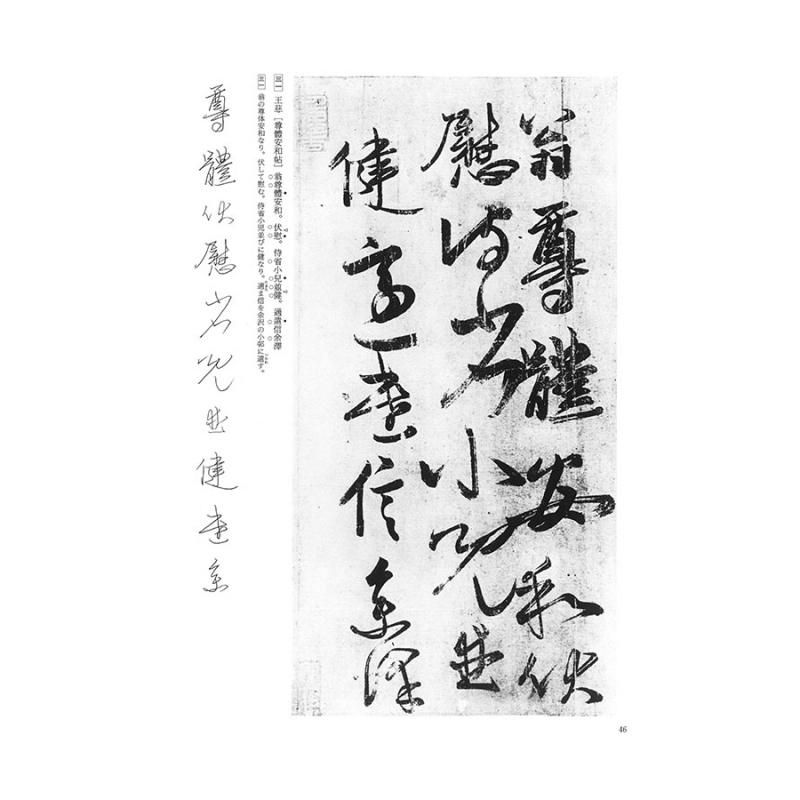 翁尊體安和伏
慰侍省小兒並
健適遣信余澤
三一 王慈［尊體安和帖］翁尊體安和。伏慰。侍省小兒並健。適遣信余澤
三一 翁の尊体安和なり。伏して慰む。侍省小児並びに健なり。適ま信を余沢の小邨に遣す。
尊體伏慰省児並健遣余
46